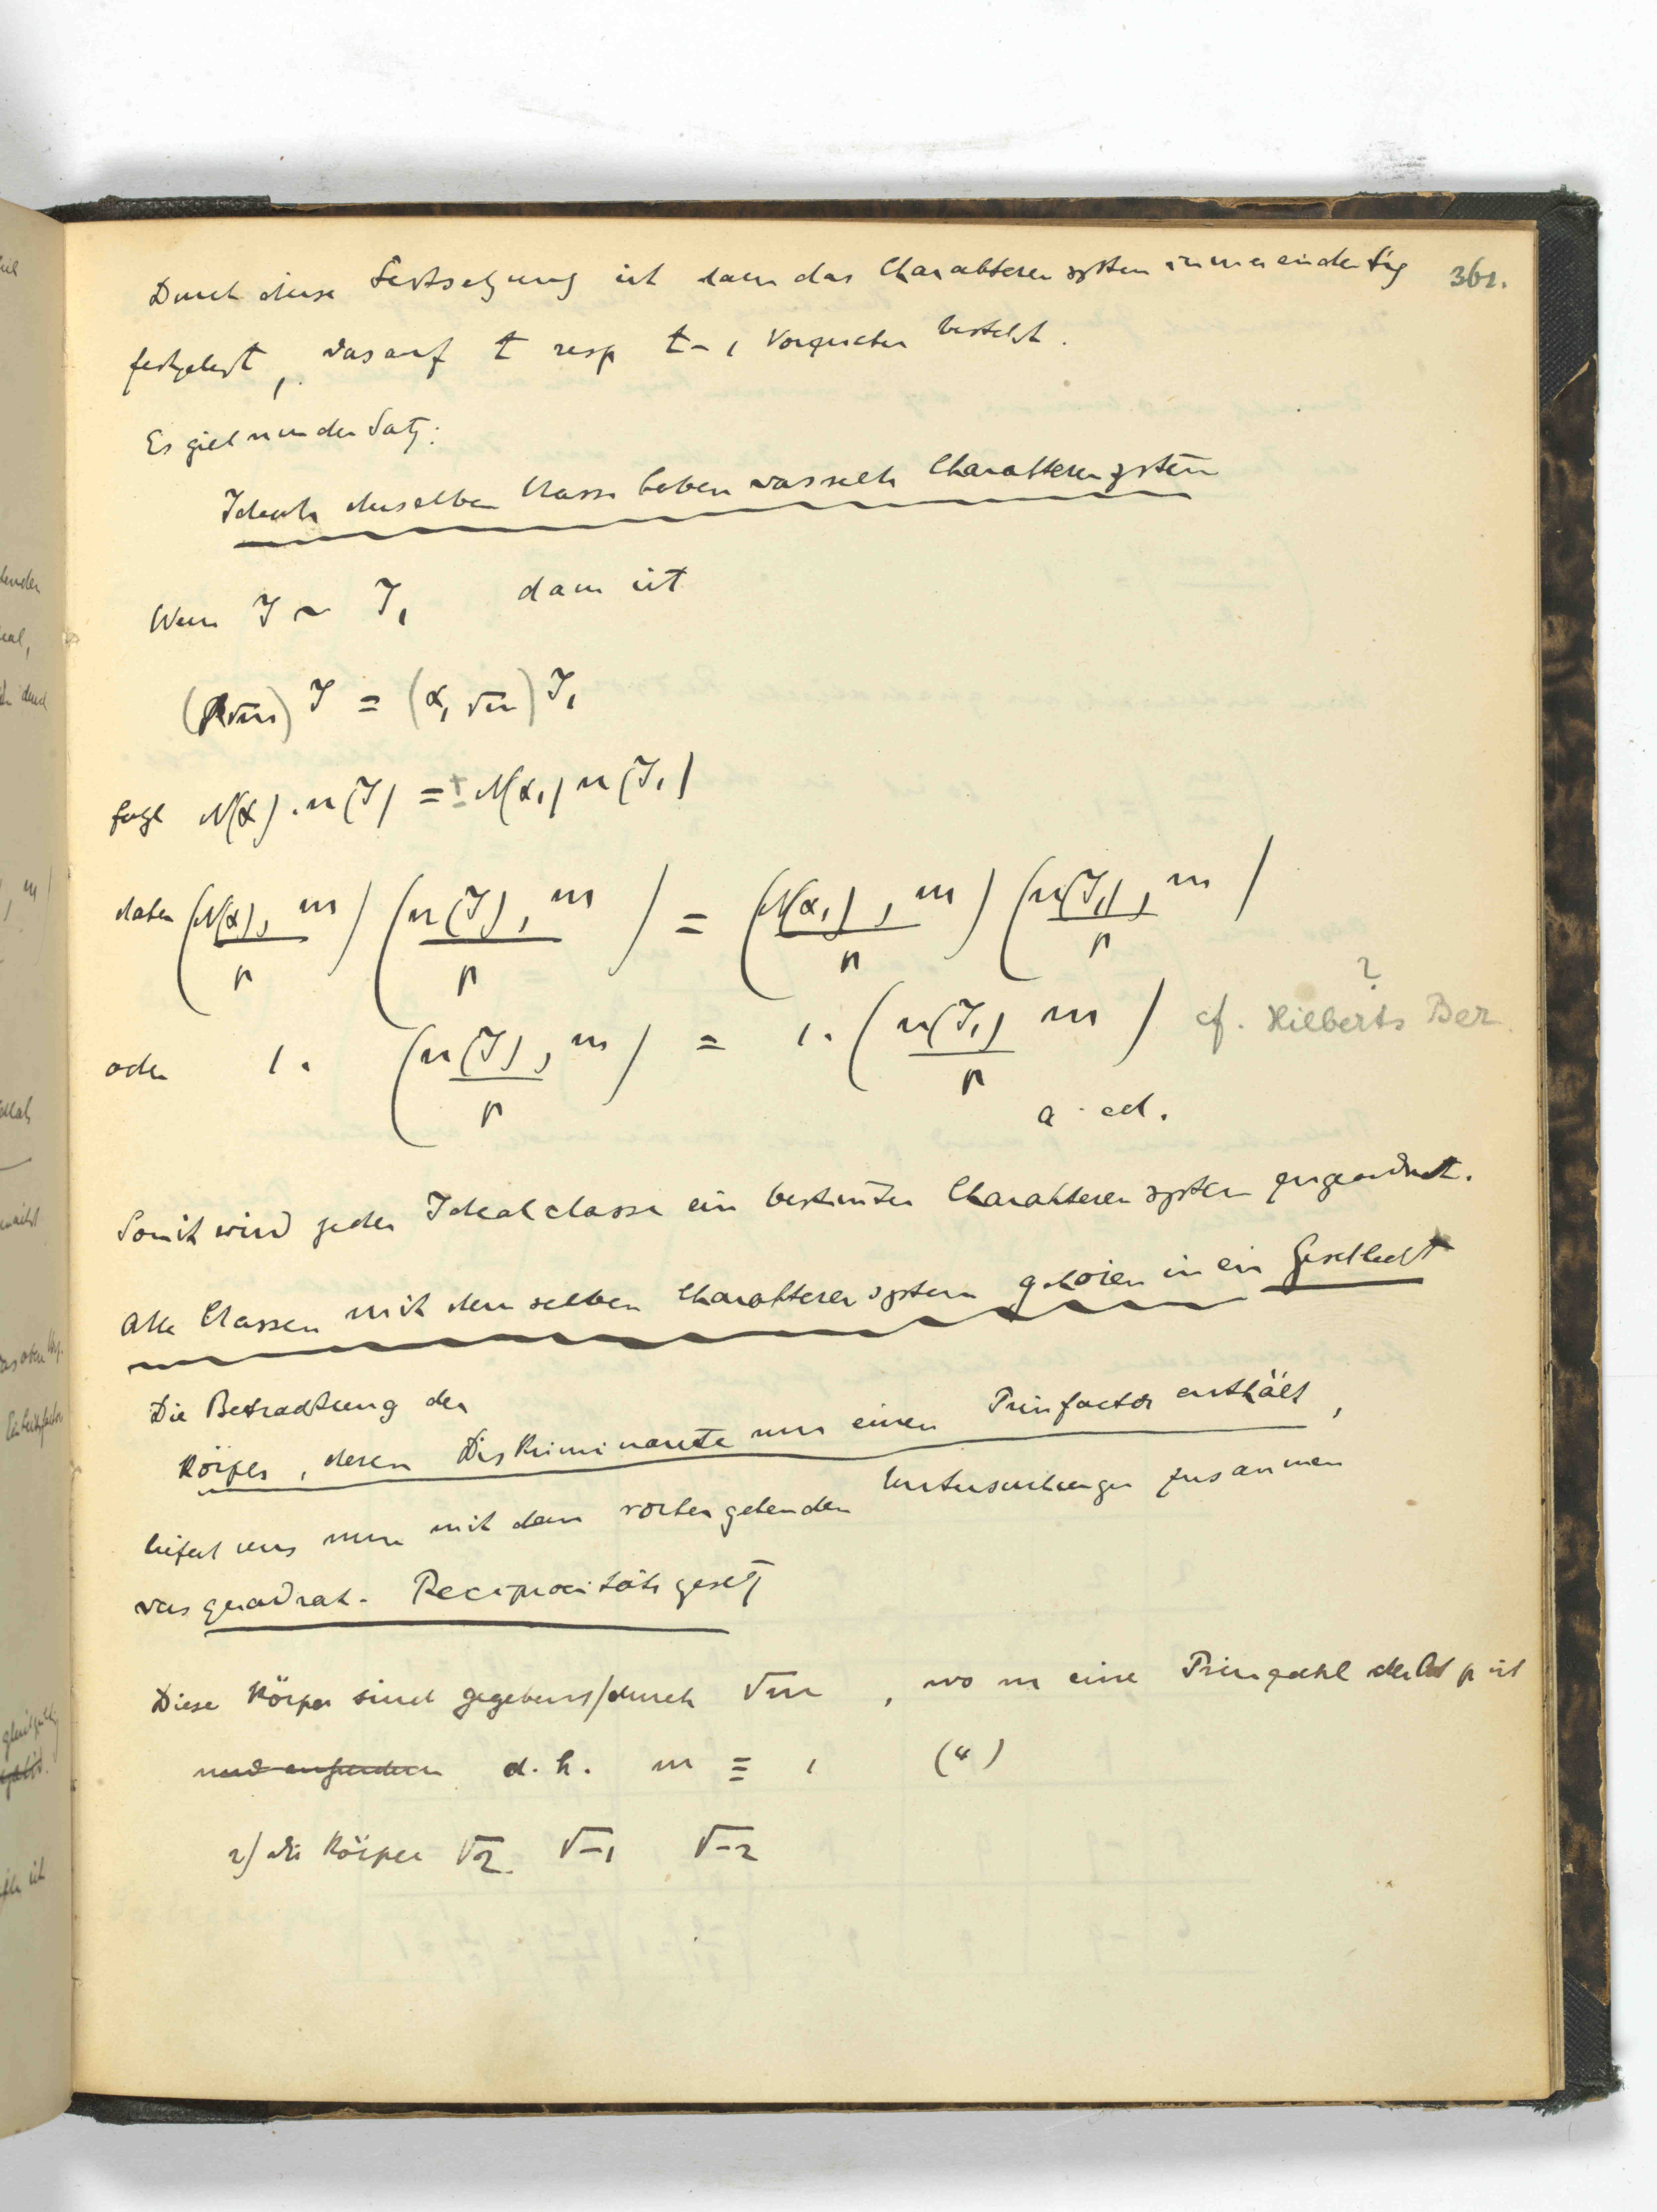 Durch diese Festsetzung ist dann das Charakterensystem immer eindeutig 361.
festgelegt, das auf t resp t-1 Vorzeichen besteht.
Es gielt nun der Satz:
Ideale derselben Classe haben dasselbe Charakterensystem
Wenn J ~ J₁ dann ist
(α, √m) J = (α₁ √m) J₁
folgt N(α) . n(J) = ± N(α₁) n(J₁)
daher (N(α), m / p) (n(J), m / p) = (N(α₁), m / p) (n(J₁), m / p)
?
oder 1. (n(J), m / p) = 1. (n(J₁) m / p) cf. Hilberts Ber.
q. ed.
Somit wird jeder Idealclasse ein bestimtes Charakterensystem zugeordnet.
Alle Classen mit demselben Charakterensystem gehören in ein Geschlecht
Die Betrachtung der
Körper, deren Diskriminante nur einen Primfactor enthält,
liefert uns nun mit den vorhergehenden Untersuchungen zusammen
das quadrat. Reciprocitätsgesetz
Diese Körper sind gegeben 1/ durch √m , wo m eine Primzahl der Art p ist
d. h. m ≡ 1 (4)
2) die Körper √2 √-1 √-2